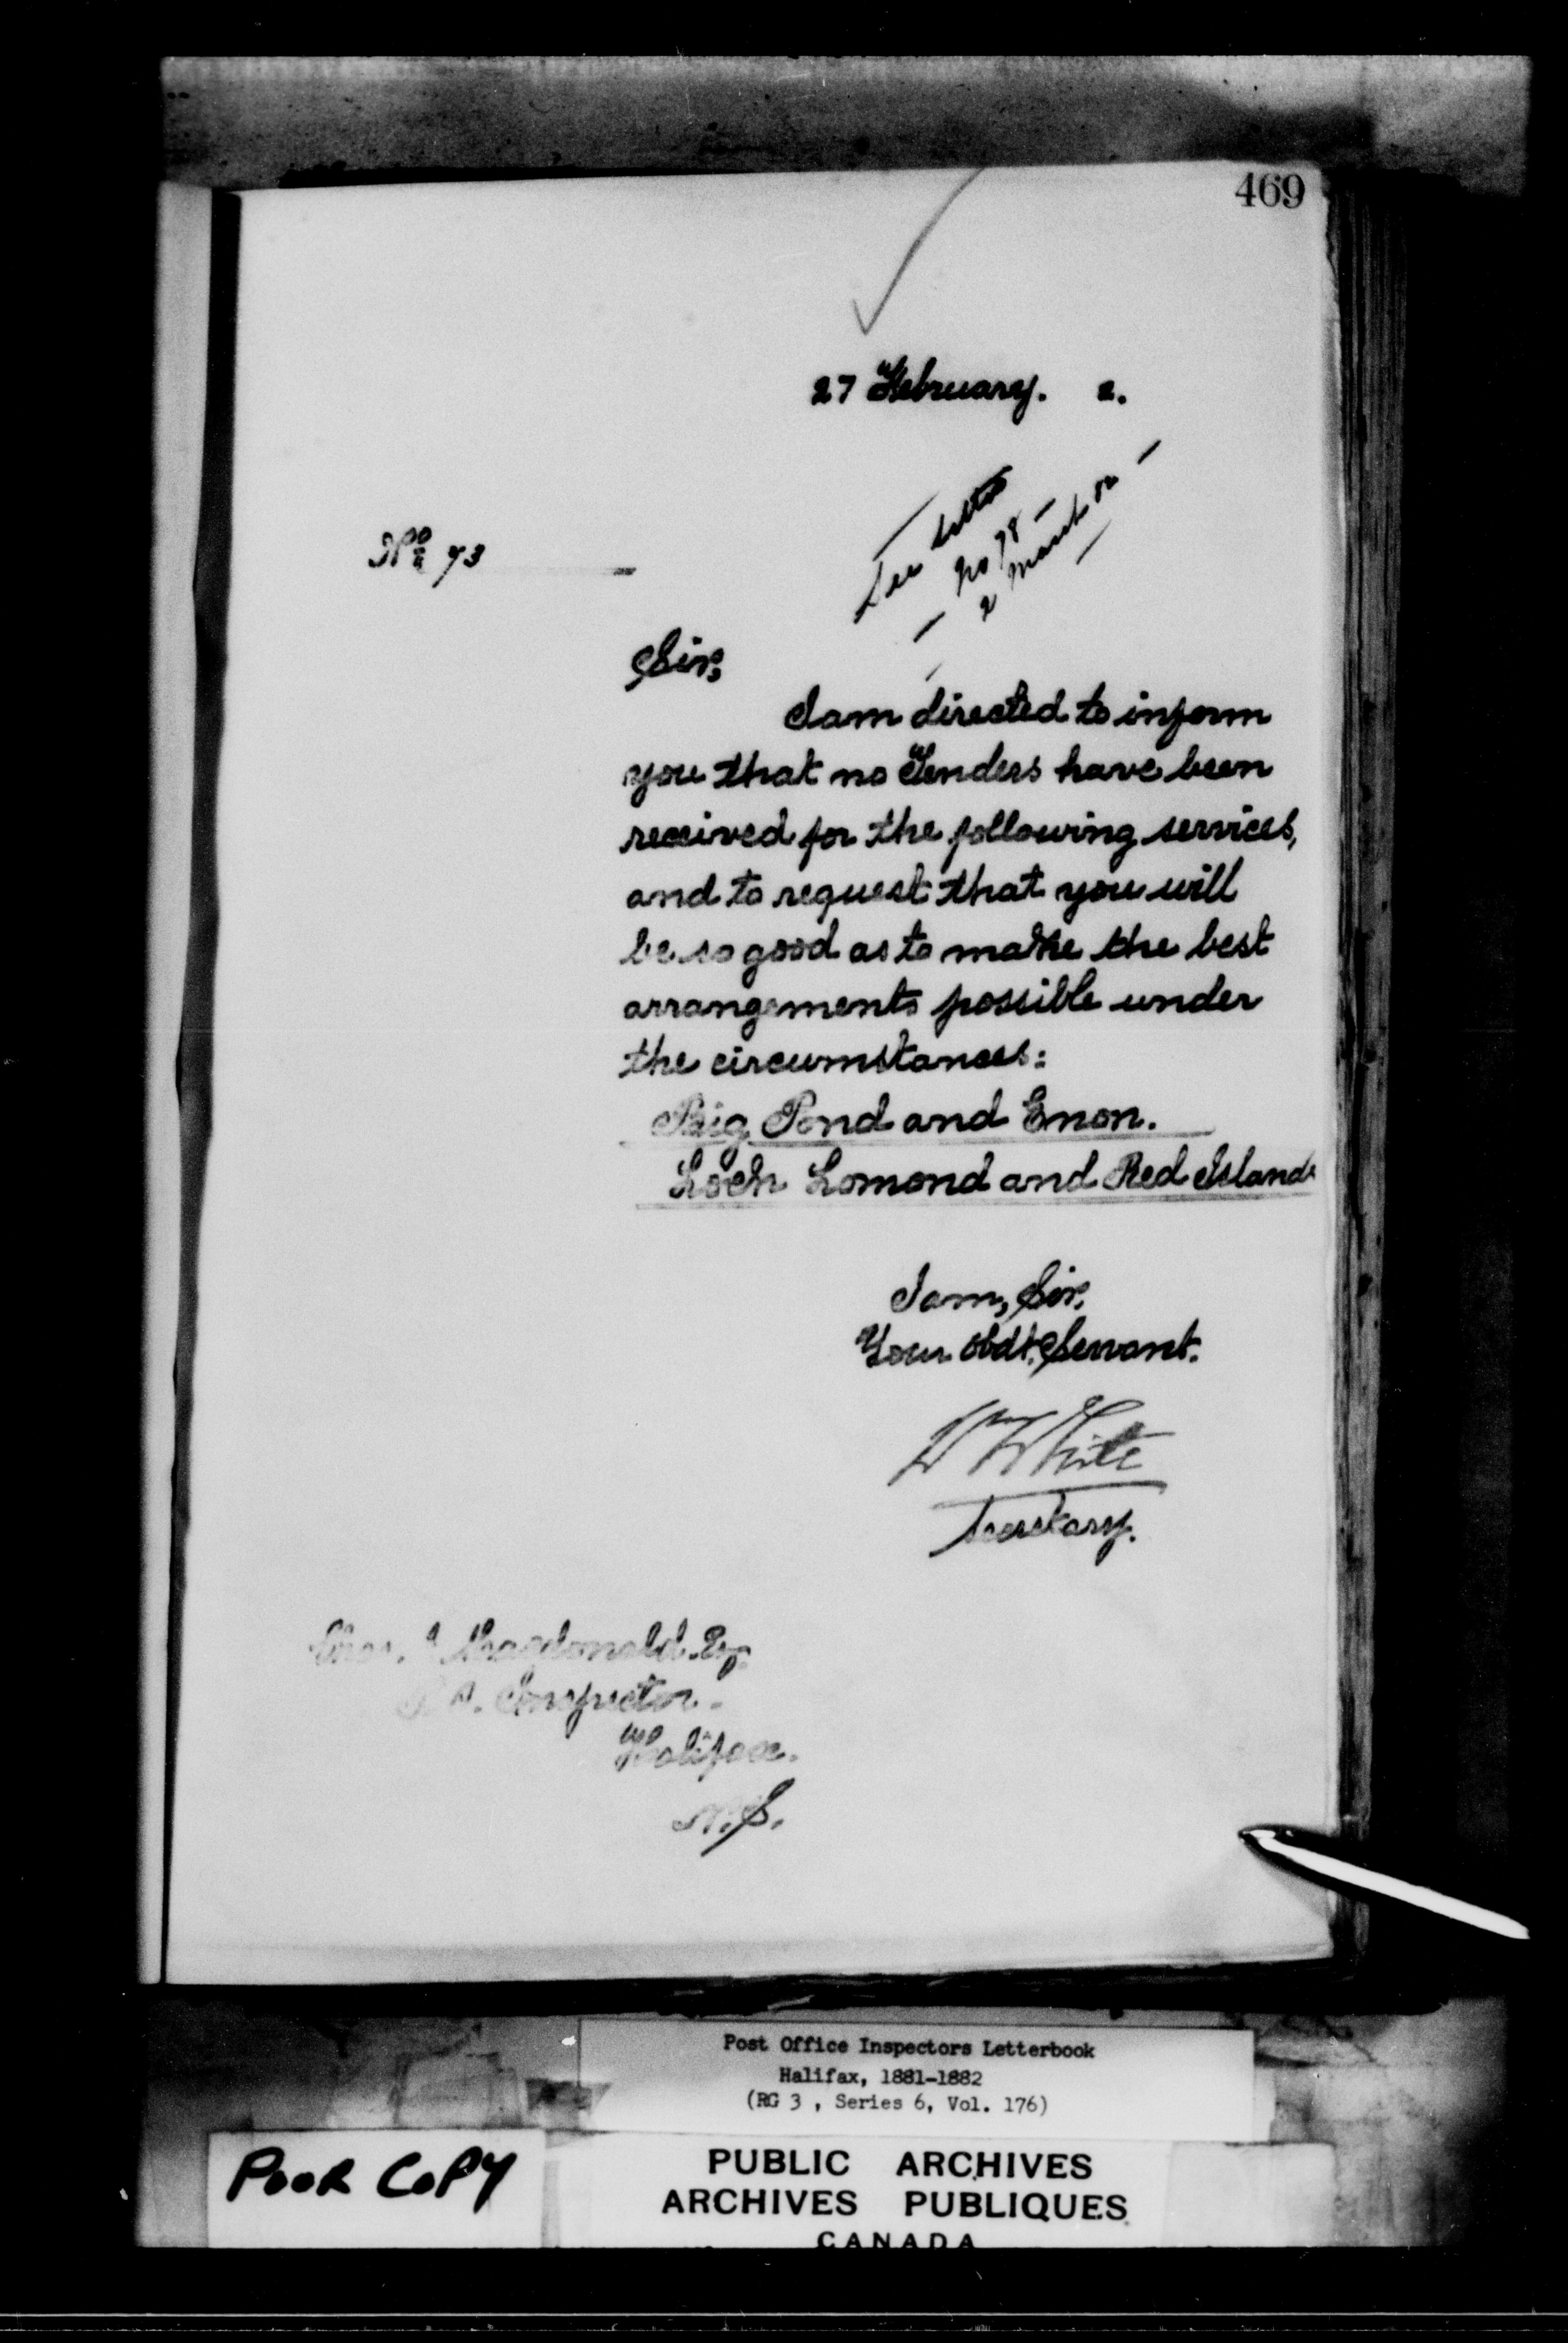 469
27 February. 2.
See Letter
No 78 —
2 March 82 —
No. 73
Sir,
I am directed to inform
you that no Tenders have been
received for the following services,
and to request that you will
be so good as to make the best
arrangements possible under
the circumstances:
Big Pond and Enon.
Loch Lomond and Red Islands
I am, Sir,
Your obdt. Servant.
W White
Secretary.
Macdonald Esq.
P.O. Inspector.
Halifax.
N.S.
Post Office Inspectors Letterbook
Halifax, 1881-1882
(RG 3 , Series 6, Vol. 176)
POOR COPY
PUBLIC ARCHIVES
ARCHIVES PUBLIQUES
CANADA